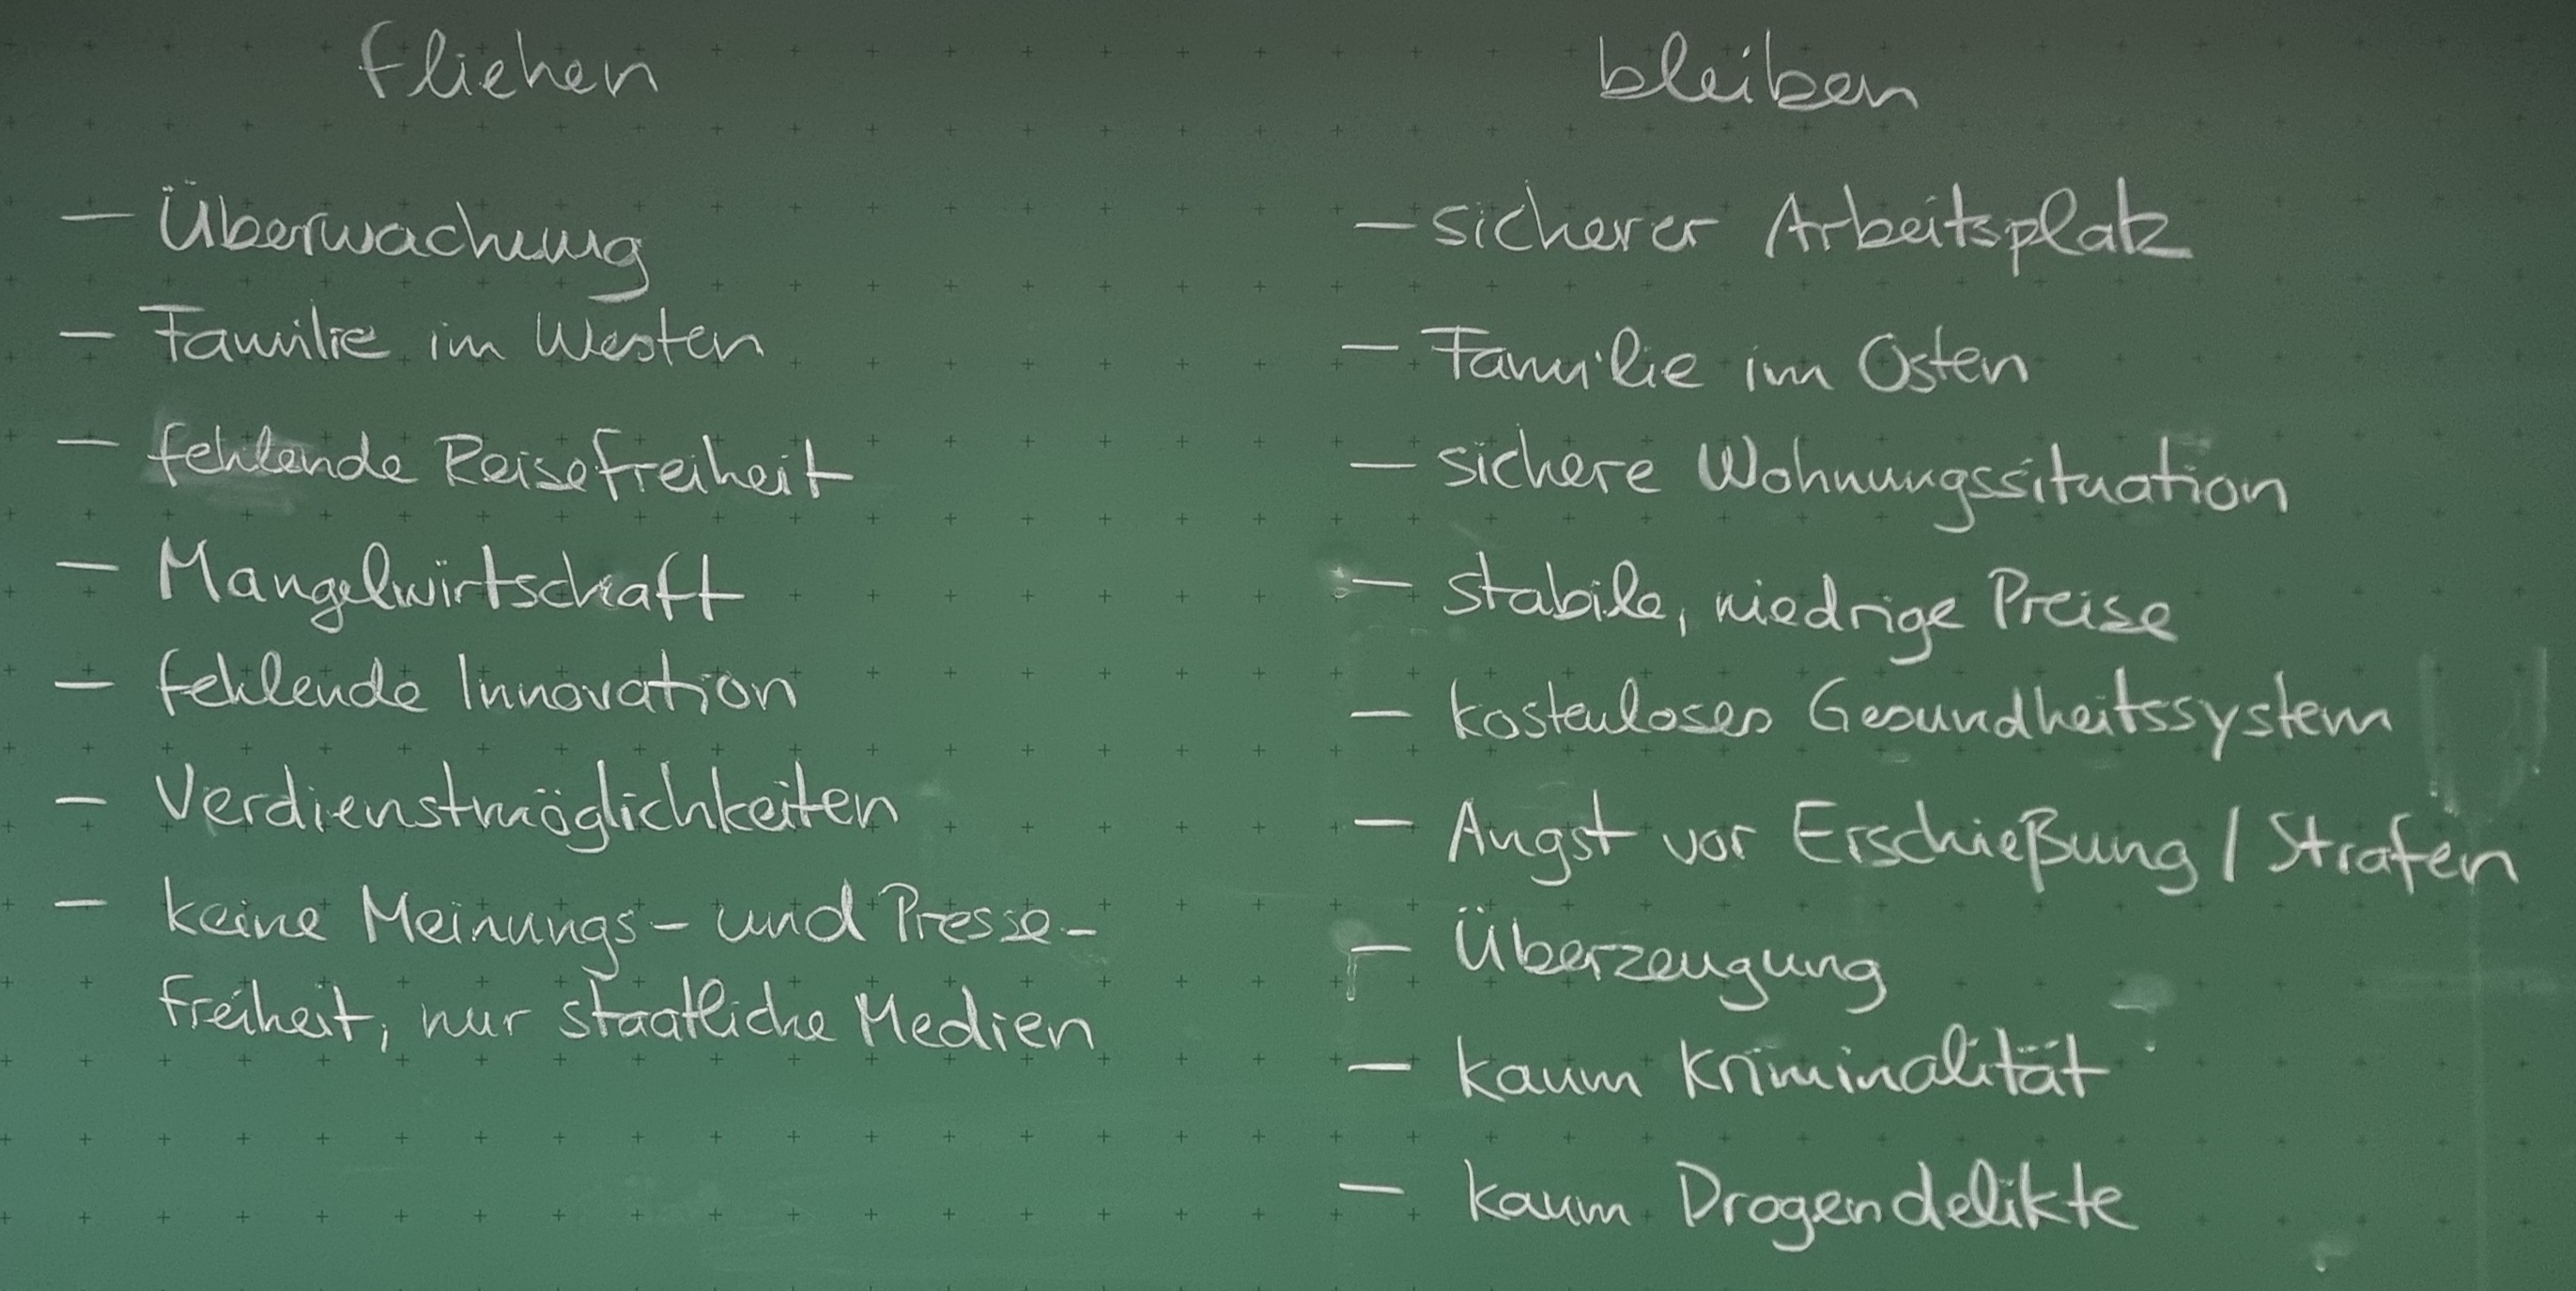 fliehen
- Überwachung
- Familie im Westen
- fehlende Reisefreiheit
- Mangelwirtschaft
- fehlende Innovation
- Verdienstmöglichkeiten
- keine Meinungs- und Presse-
freiheit, nur staatliche Medien
bleiben
- sicherer Arbeitsplatz
- Familie im Osten
- sichere Wohnungssituation
- stabile, niedrige Preise
- kostenloses Gesundheitssystem
- Angst vor Erschießung / Strafen
- Überzeugung
- kaum Kriminalität
- kaum Drogendelikte